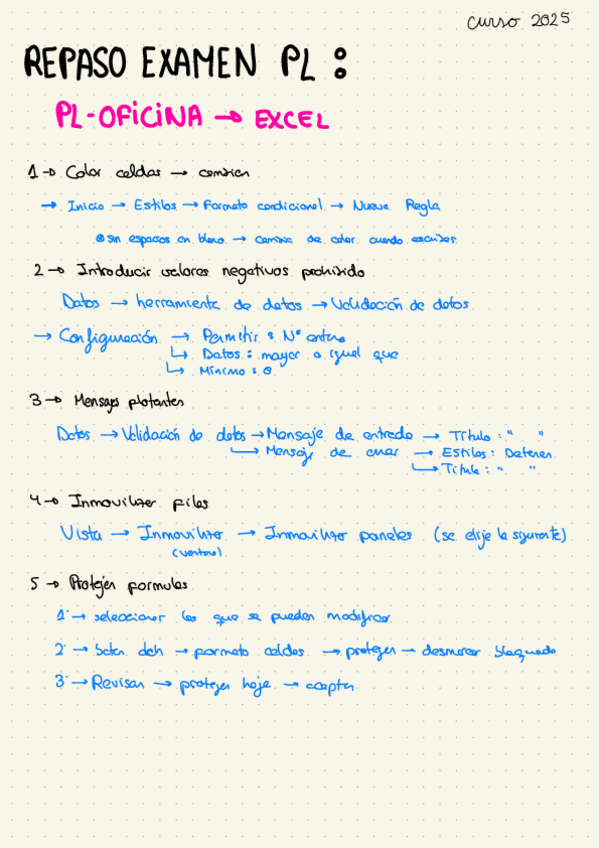 curso 2025
REPASO EXAMEN PL :
PL-OFICINA → EXCEL
1 → Color celdas → cambien
→ Inicio → Estilos → Formato condicional → Nueva Regla
sin espacios en blanco → cambia de color cuando escribes
2 → Introducir valores negativos prohibido
Datos → herramienta de datos → Validación de datos
→ Configuración → Permitir : Nº entero
↳ Datos : mayor o igual que
↳ Mínimo : 0
3 → Mensajes flotantes
Datos → Validación de datos → Mensaje de entrada → Título : " "
↳ Mensaje de error → Estilos : Detener
↳ Título : " "
4 → Inmovilizar filas
Vista → Inmovilizar → Inmovilizar paneles (se elije la siguiente)
(ventana)
5 → Protejer formulas
1º → seleccionar las que se pueden modificar
2º → boton dch → formato celdas → proteger → desmarcar bloqueado
3º → Revisar → proteger hoja → aceptar